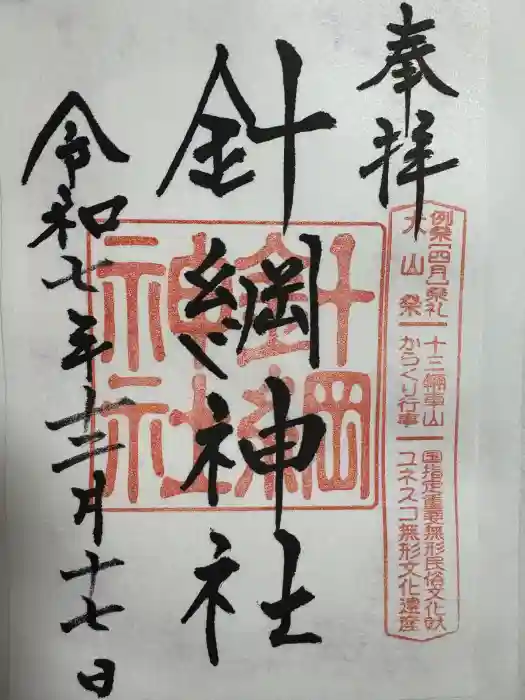 奉拝
例祭「四月」祭礼
犬山祭
十三輌車山
からくり行事
国指定重要無形民俗文化財
ユネスコ無形文化遺産
針綱神社
針綱神社
令和七年十二月十七日